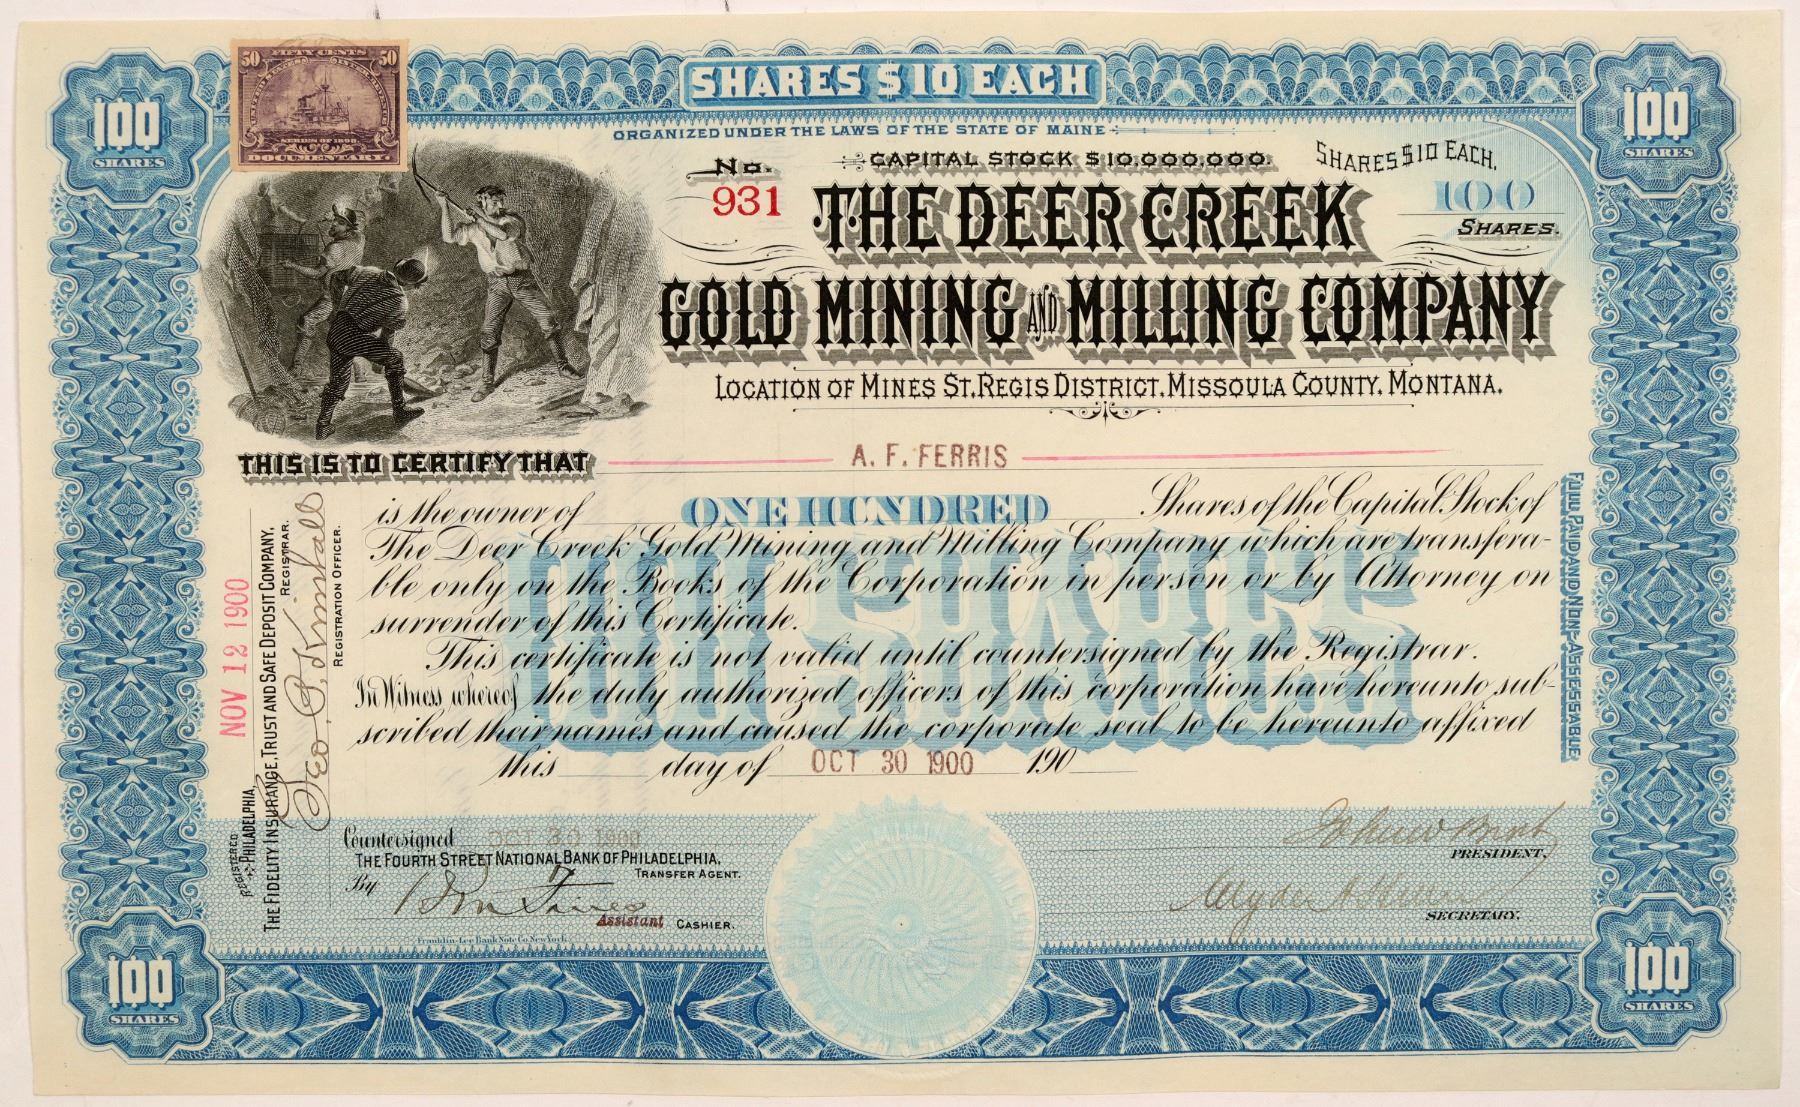 50 FIFTY CENTS 50
UNITED STATES INTER. REVENUE
SERIES OF 1898
DOCUMENTARY.
SHARES $10 EACH
100 SHARES
100 SHARES
ORGANIZED UNDER THE LAWS OF THE STATE OF MAINE
No. 931
CAPITAL STOCK $10,000,000.
SHARES $10 EACH.
100 SHARES.
THE DEER CREEK
GOLD MINING AND MILLING COMPANY
LOCATION OF MINES ST. REGIS DISTRICT, MISSOULA COUNTY, MONTANA.
THIS IS TO CERTIFY THAT A. F. FERRIS
is the owner of ONE HUNDRED Shares of the Capital Stock of
The Deer Creek Gold Mining and Milling Company which are transfera-
ble only on the Books of the Corporation in person or by Attorney on
surrender of this Certificate.
This certificate is not valid until countersigned by the Registrar.
In Witness whereof the duly authorized officers of this corporation have hereunto sub-
scribed their names and caused the corporate seal to be hereunto affixed
this day of OCT 30 1900 190
100 SHARES
FULL PAID AND NON-ASSESSABLE.
NOV 12 1900
REGISTERED PHILADELPHIA,
THE FIDELITY INSURANCE, TRUST AND SAFE DEPOSIT COMPANY,
REGISTRAR.
Geo. P. Kimball
REGISTRATION OFFICER.
Countersigned OCT 30 1900
THE FOURTH STREET NATIONAL BANK OF PHILADELPHIA,
TRANSFER AGENT.
By
Assistant CASHIER.
Franklin-Lee Bank Note Co. New York
PRESIDENT,
SECRETARY.
100 SHARES
100 SHARES